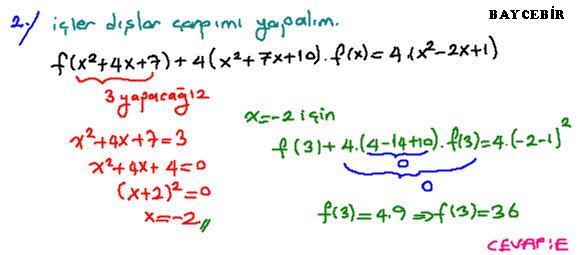 BAYCEBİR
2.) içler dışlar çarpımı yapalım.
f(x²+4x+7)+4(x²+7x+10).f(x)=4.(x²-2x+1)
3 yapacağız
x²+4x+7=3
x²+4x+4=0
(x+2)²=0
x=-2//
x=-2 için
f(3)+4.(4-14+10).f(3)=4.(-2-1)²
0
0
f(3)=4.9⇒f(3)=36
CEVAP:E